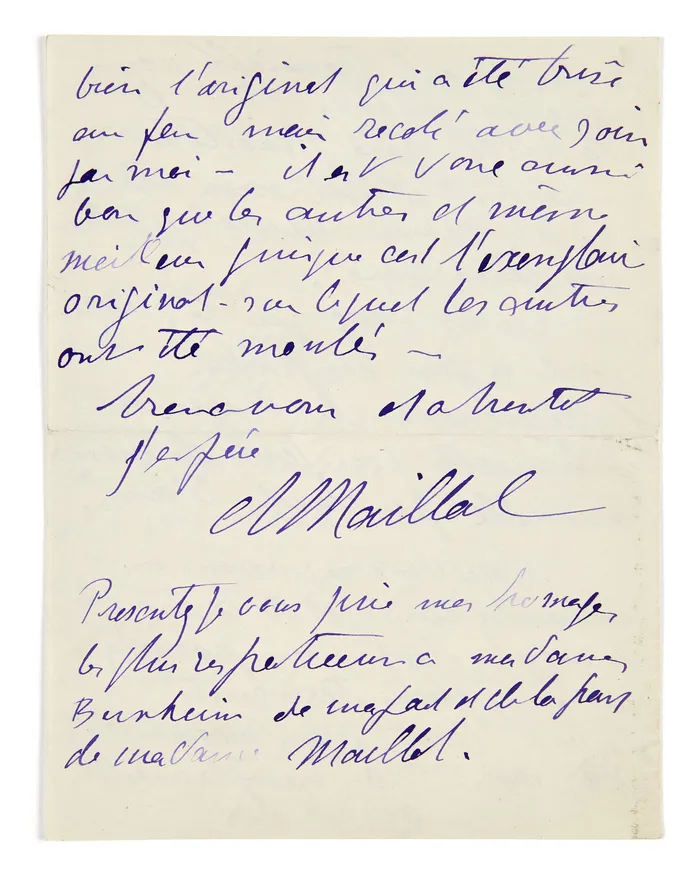 bien l'original qui a été brisé
au feu mais recolé avec soin
par moi – il est donc aussi
bon que les autres et même
meilleur puisque c'est l'exemplaire
original – sur lequel les autres
ont été moulés –
et a bientot
j'espère
A Maillol
Presentez je vous prie mes homages
les plus respectueux a mesdames
Bernheim de ma part et de la part
de madame Maillol.